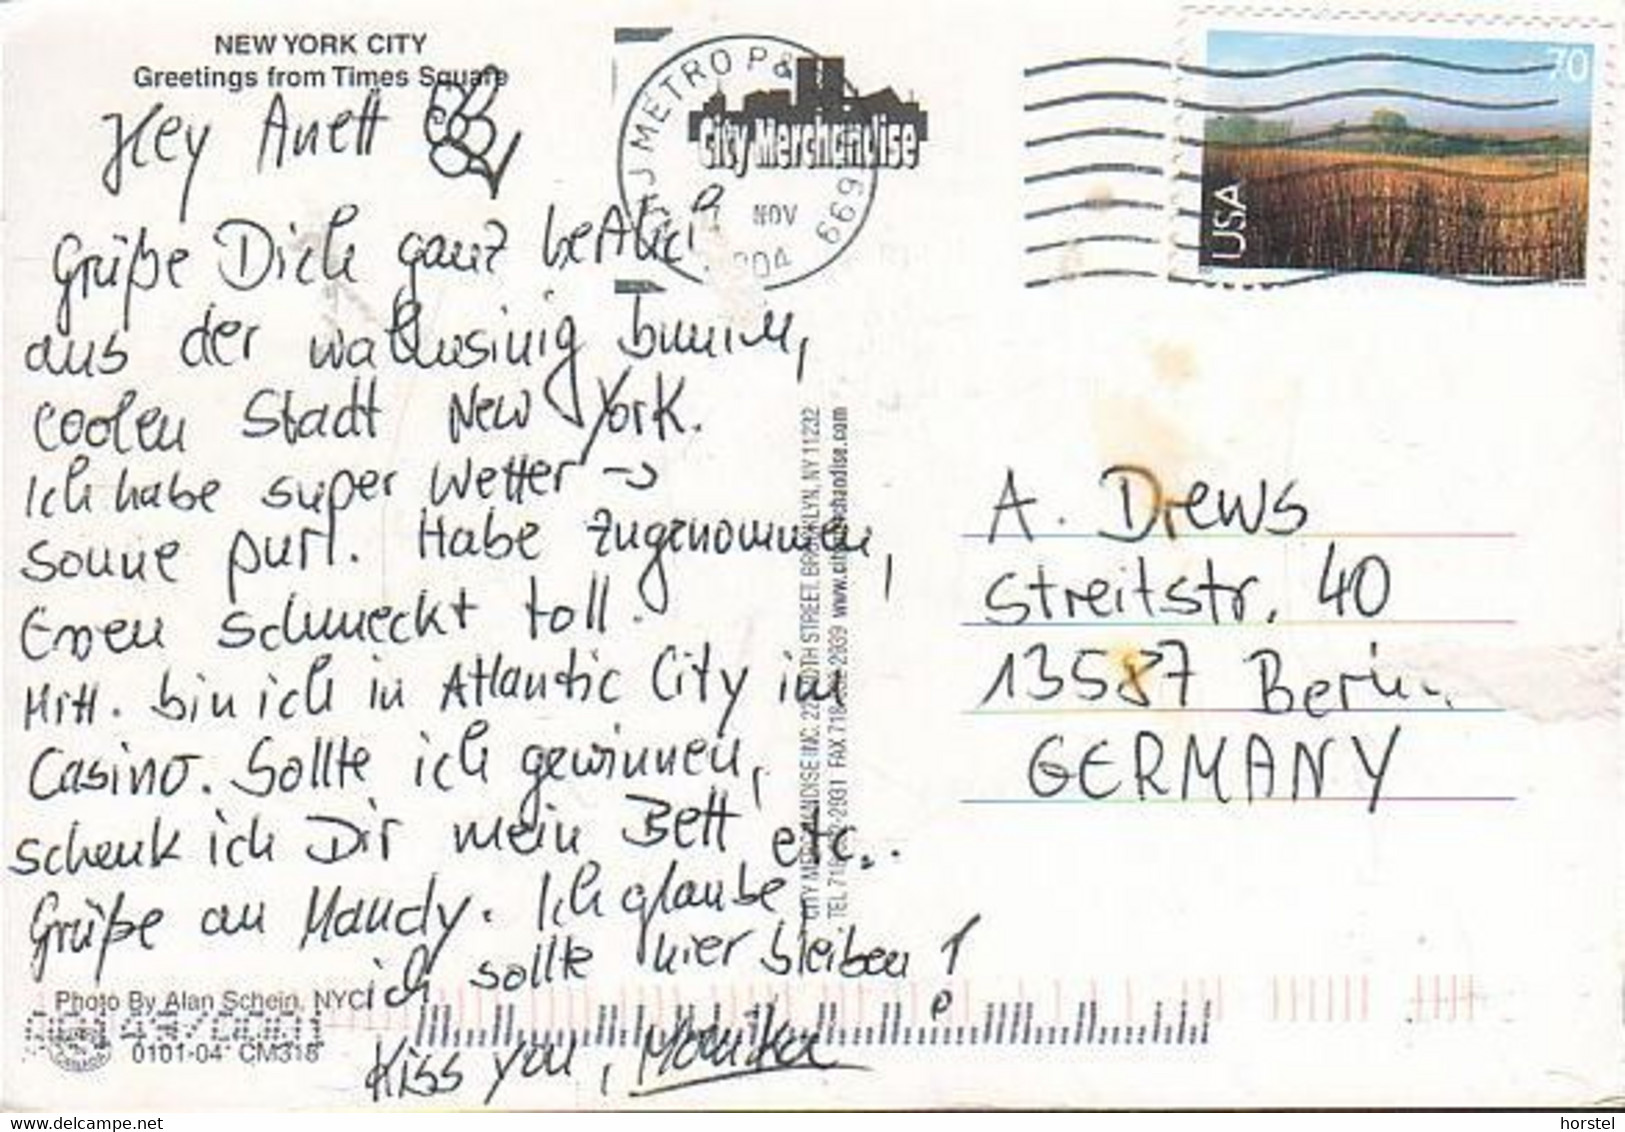 NEW YORK CITY
Greetings from Times Square
Hey Anett
Grüße Dich ganz herzlich
aus der wahnsinnig
coolen Stadt New York.
Ich habe super Wetter →
Sonne pur!. Habe zugenommen,
Essen schmeckt toll.
Mitt. bin ich in Atlantic City im
Casino. Sollte ich gewinnen,
schenk ich Dir mein Bett etc..
Grüße an Mandy. Ich glaube
ich sollte hier bleiben !
Kiss you, Monika
Photo By Alan Schein, NYC
0101-04 CM318
NJ METRO P&
699
NOV
City Merchandise
CITY MERCHANDISE INC. STREET, BROOKLYN, NY 11232
TEL 2931 FAX 718 2939 www.citymerchandise.com
70
USA
A. Drews
Streitstr. 40
13587 Berlin
GERMANY
© horstel
www.delcampe.net